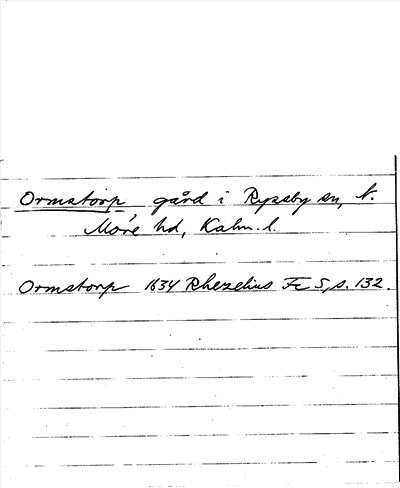 Ormstorp gård i Ryssby sn, N.
Möre hd, Kalm. l.
Ormstorp 1634 Rhezelius Fc 5, s. 132.